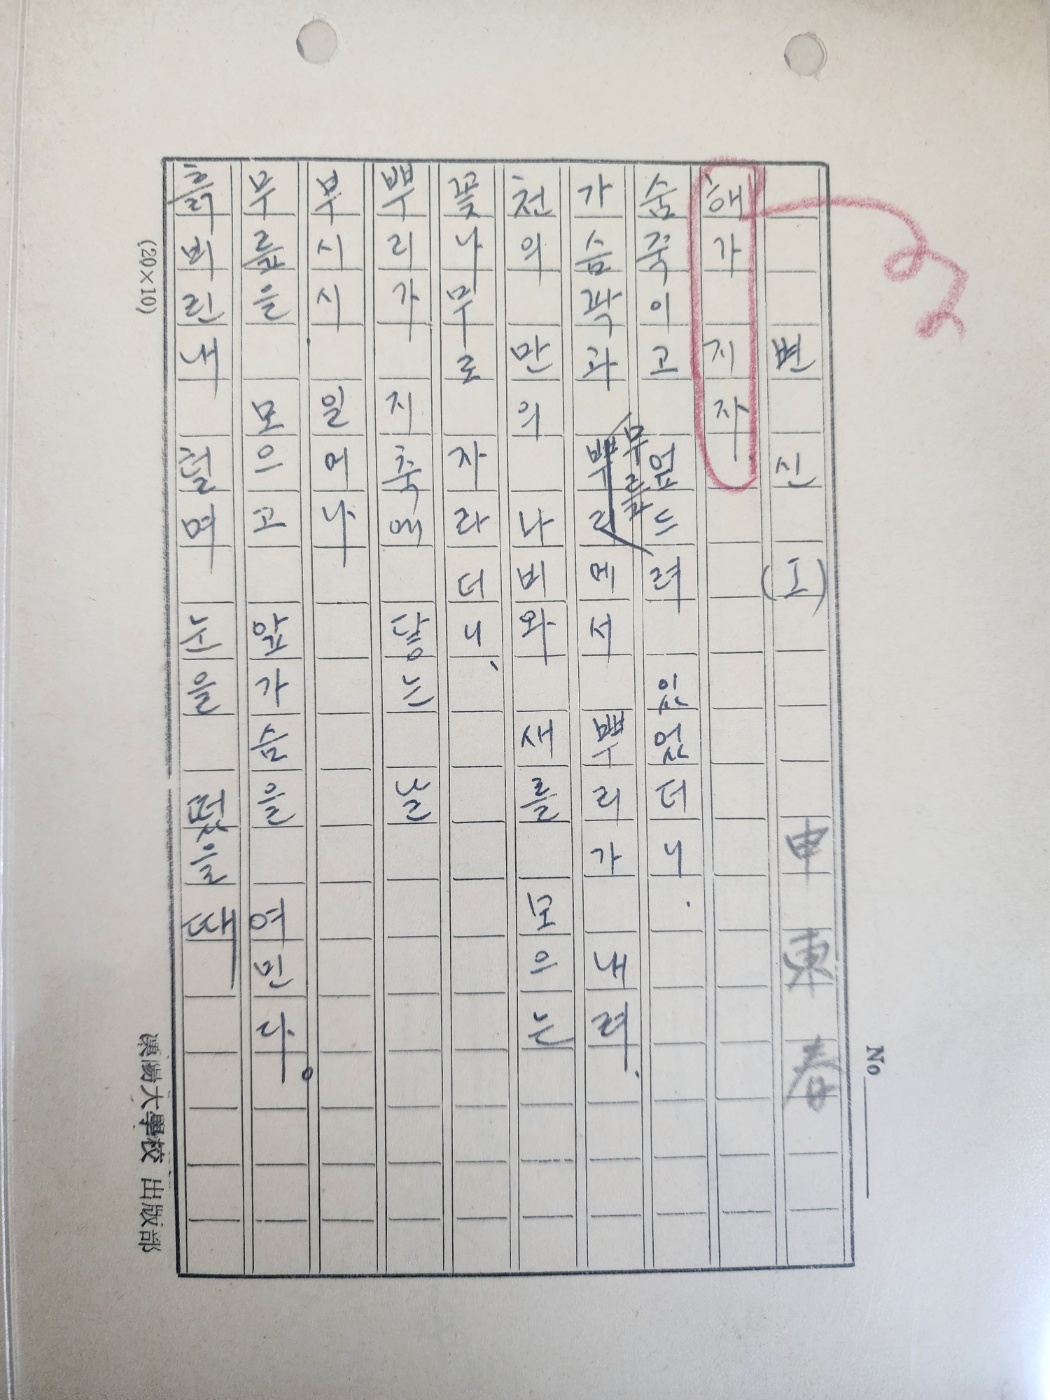 변신 (I) 申東春
해가 지자
숨죽이고 엎드려 있었더니.
가슴곽과 무릎과 뿌리에서 뿌리가 내려.
천의 만의 나비와 새를 모으는
꽃나무로 자라더니,
뿌리가 지축에 닿는 날
부시시 일어나
무릎을 모으고 앞가슴을 여민다。
흙비린내 헐며 눈을 떴을 때
No
(20×10)
大學校 出版部